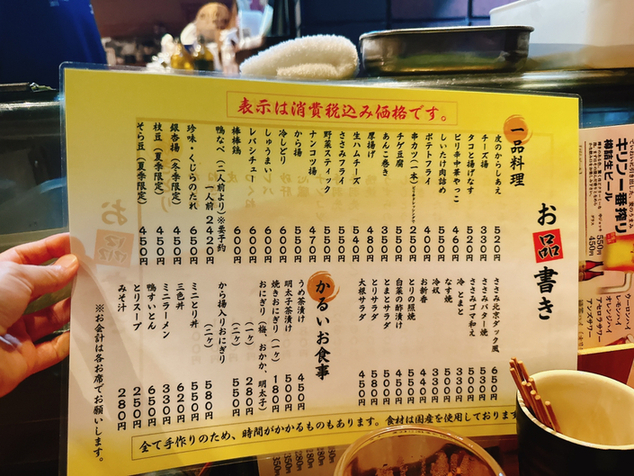 表示は消費税込み価格です。
お品書き
一品料理
皮のからしあえ 520円
チーズ揚 530円
タコと揚げなす 520円
ピリ辛中華やっこ 460円
しいたけ肉詰め 500円
ポテトフライ 400円
串カツ(二本) 250円
チゲ豆腐 500円
あんこ巻き 350円
厚揚げ 480円
生ハムチーズ 540円
ささみフライ 550円
野菜スティック 550円
ナンコツ揚 470円
から揚 550円
冷しどり 600円
しゅうまい 600円
レバシチュー 600円
棒棒鶏 600円
鴨なべ(二人前より)※要予約
一人前
珍味・くじらのたれ 650円
銀杏揚(冬季限定) 450円
枝豆(夏季限定) 450円
そら豆(夏季限定) 450円
ささみ北京ダック風 650円
ささみバター焼 530円
ささみゴマ和え 530円
冷とまと 330円
なす焼 500円
冷奴 330円
お新香 430円
とりの照焼 530円
白菜の酢漬け 400円
とまとサラダ 500円
とりサラダ 580円
大根サラダ 450円
かるいお食事
うめ茶漬け 450円
明太子茶漬け 500円
焼きおにぎり(一ヶ) 180円
おにぎり(梅、おかか、明太子)
(一ヶ) 280円
から揚入りおにぎり
(二ヶ) 550円
ミニとり丼 580円
三色丼 620円
ミニラーメン 330円
鴨すいとん 650円
とりスープ 250円
みそ汁 280円
※お会計は各お席でお願いします。
全て手作りのため、時間がかかるものもあります。食材は国産を使用しております
キリン一番搾り
樽詰生ビール
550円
450円
ウーロンハイ
レモンハイ
アセロラサワー
アンズサワー